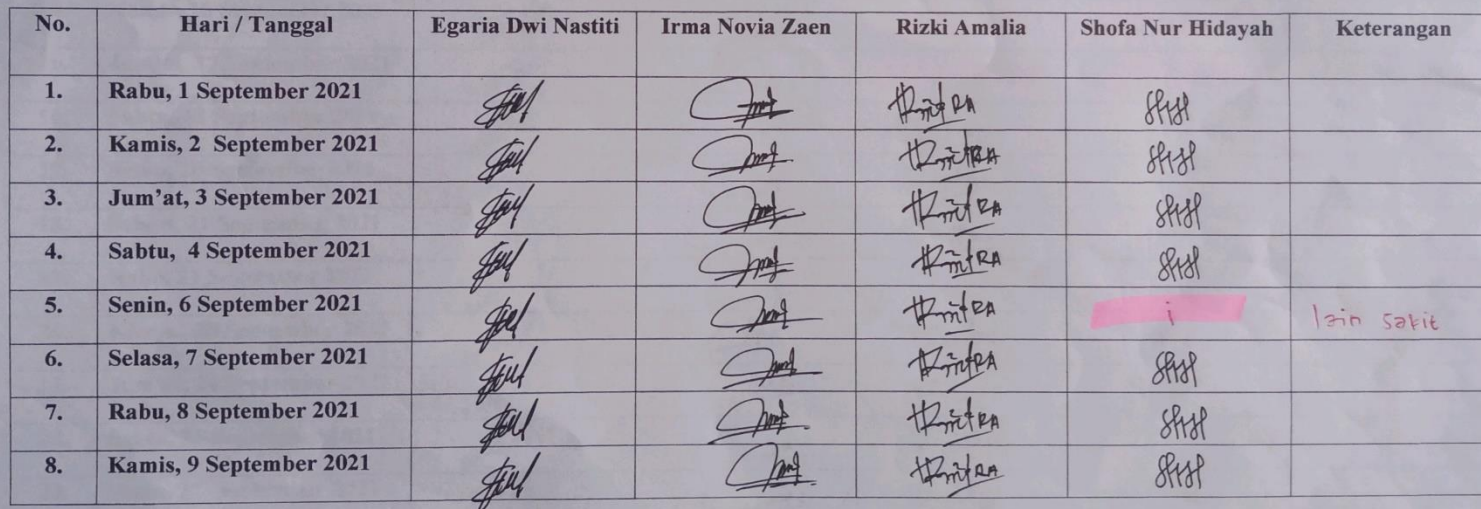 No. Hari / Tanggal Egaria Dwi Nastiti Irma Novia Zaen Rizki Amalia Shofa Nur Hidayah Keterangan
1. Rabu, 1 September 2021
2. Kamis, 2 September 2021
3. Jum'at, 3 September 2021
4. Sabtu, 4 September 2021
5. Senin, 6 September 2021 i Izin sakit
6. Selasa, 7 September 2021
7. Rabu, 8 September 2021
8. Kamis, 9 September 2021